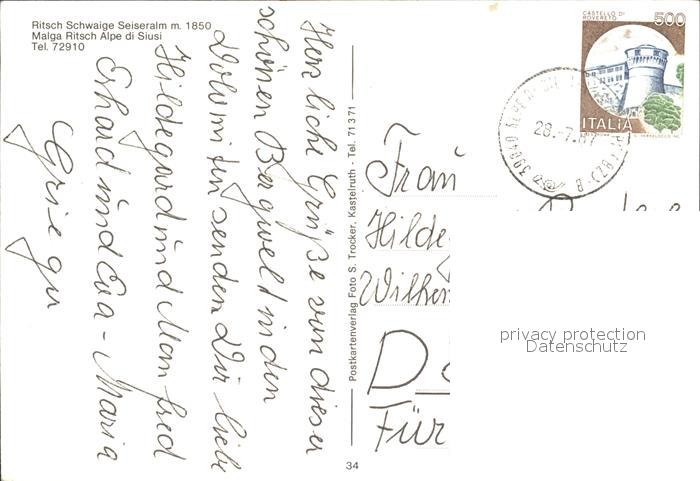 Ritsch Schwaige Seiseralm m. 1850
Malga Ritsch Alpe di Siusi
Tel. 72910
Herzliche Grüße von dieser
schönen Bergwelt in den
Dolomiten senden Dir liebe
Hildegard und Manfred
Erhard und Eva-Maria
Postkartenverlag Foto S. Trocker, Kastelruth - Tel. 71371
34
CASTELLO DI
ROVERETO
500
ITALIA
39040
28.-7.87
Frau
Hilde
Wilhe
D
Für
privacy protection
Datenschutz